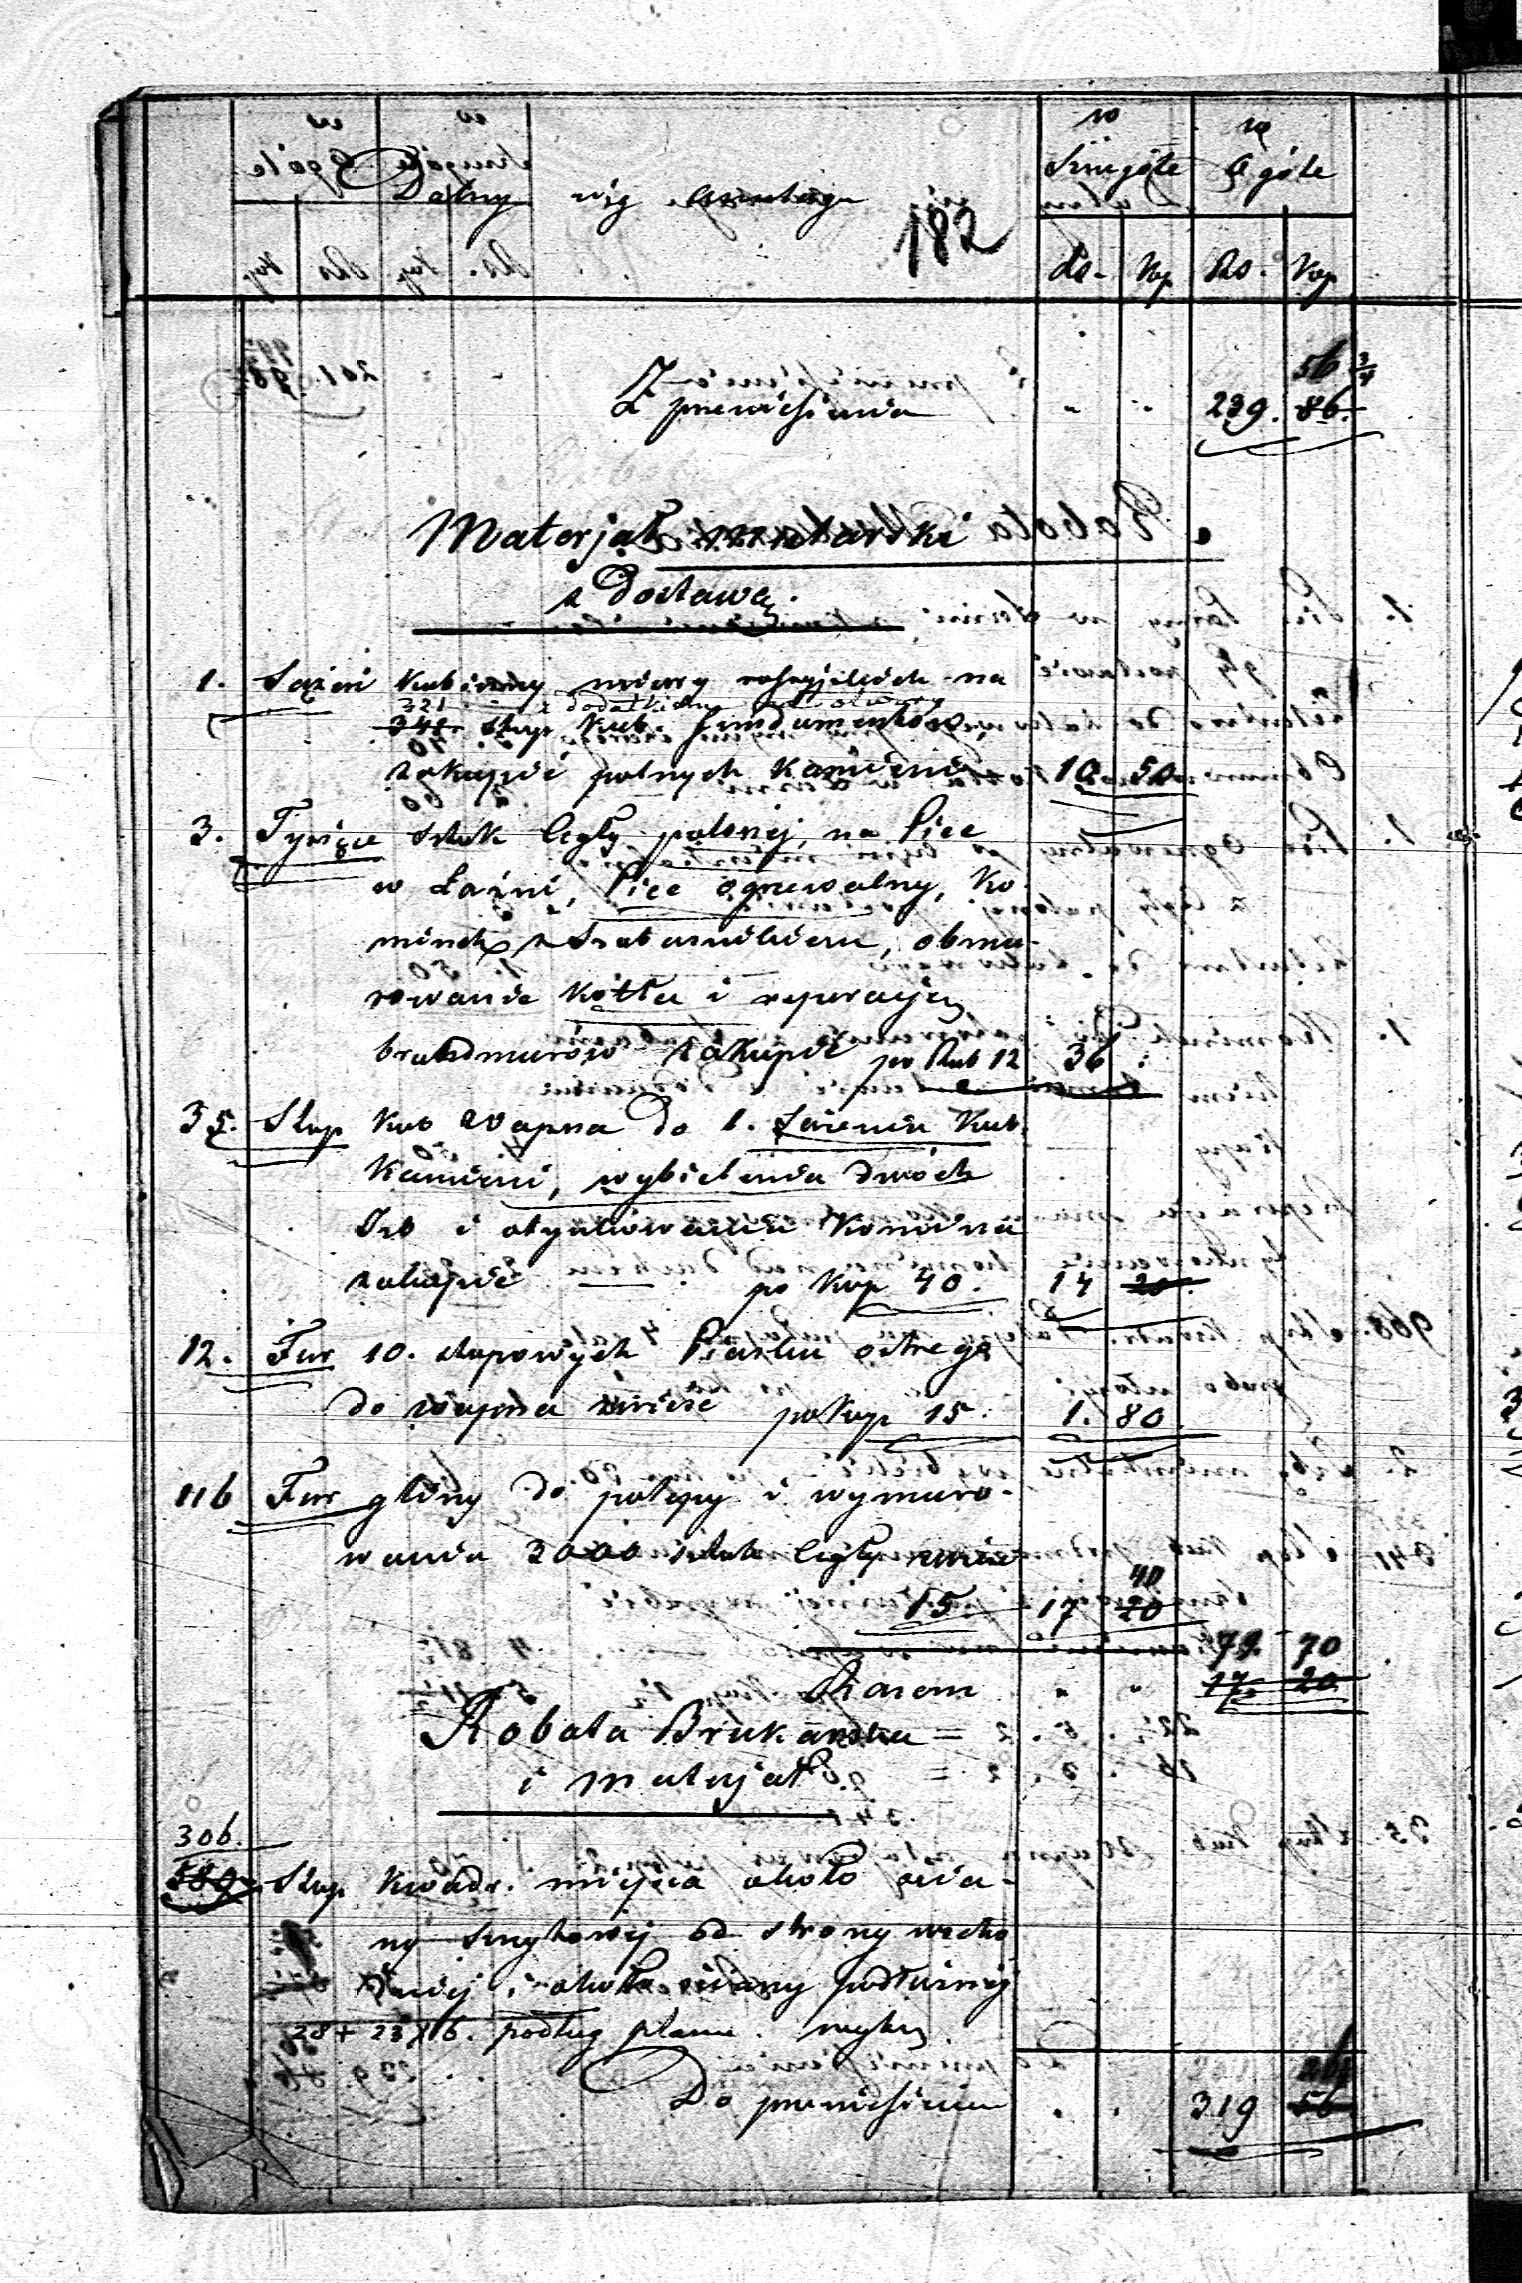 w Szczególe
w Ogóle
182
Rs. Kop Rs. Kop
56 3/4
Z przeniesienia " " 239. 86.
Materjał mularski
z Dostawą.
1. Sążeń Kubiczny miary rossyjskich na
321 z dodatkiem
341 stóp Kub. fundamentów,
zakupić polnych Kamieni 10 50
3. Tysiące Sztuk Cegły palonej, na Piec
w Łaźni, Piec ogrzewalny, Ko-
minek z Szabasnikiem, obmu-
rowanie Kotła i reperacją
brandmurów zakupić po Rub 12 36 "
35. Stóp Kub Wapna do 1. Sążenia Kub.
Kamieni, wybielenia dwóch
Izb i otynkowania Komina
zakupić — po Kop 40. 14 20
12. Fur 10. stopowych Piasku ostrego
do wapna zwieść po Kop 15. 1. 80
116 Fur gliny do polepy i wymuro-
wania 3000 sztuk cegły zwieść
40
15 17 20
79. 70
Razem " " 77. 20
Robota Brukarska
i materjał
306.
589 Stóp Kwadr. miejsca około ścia-
ny szczytowej od strony wscho
dniej i około ściany podłużnej
28 + 23 X 6. podług planu.
Do przeniesienia " " 319 56